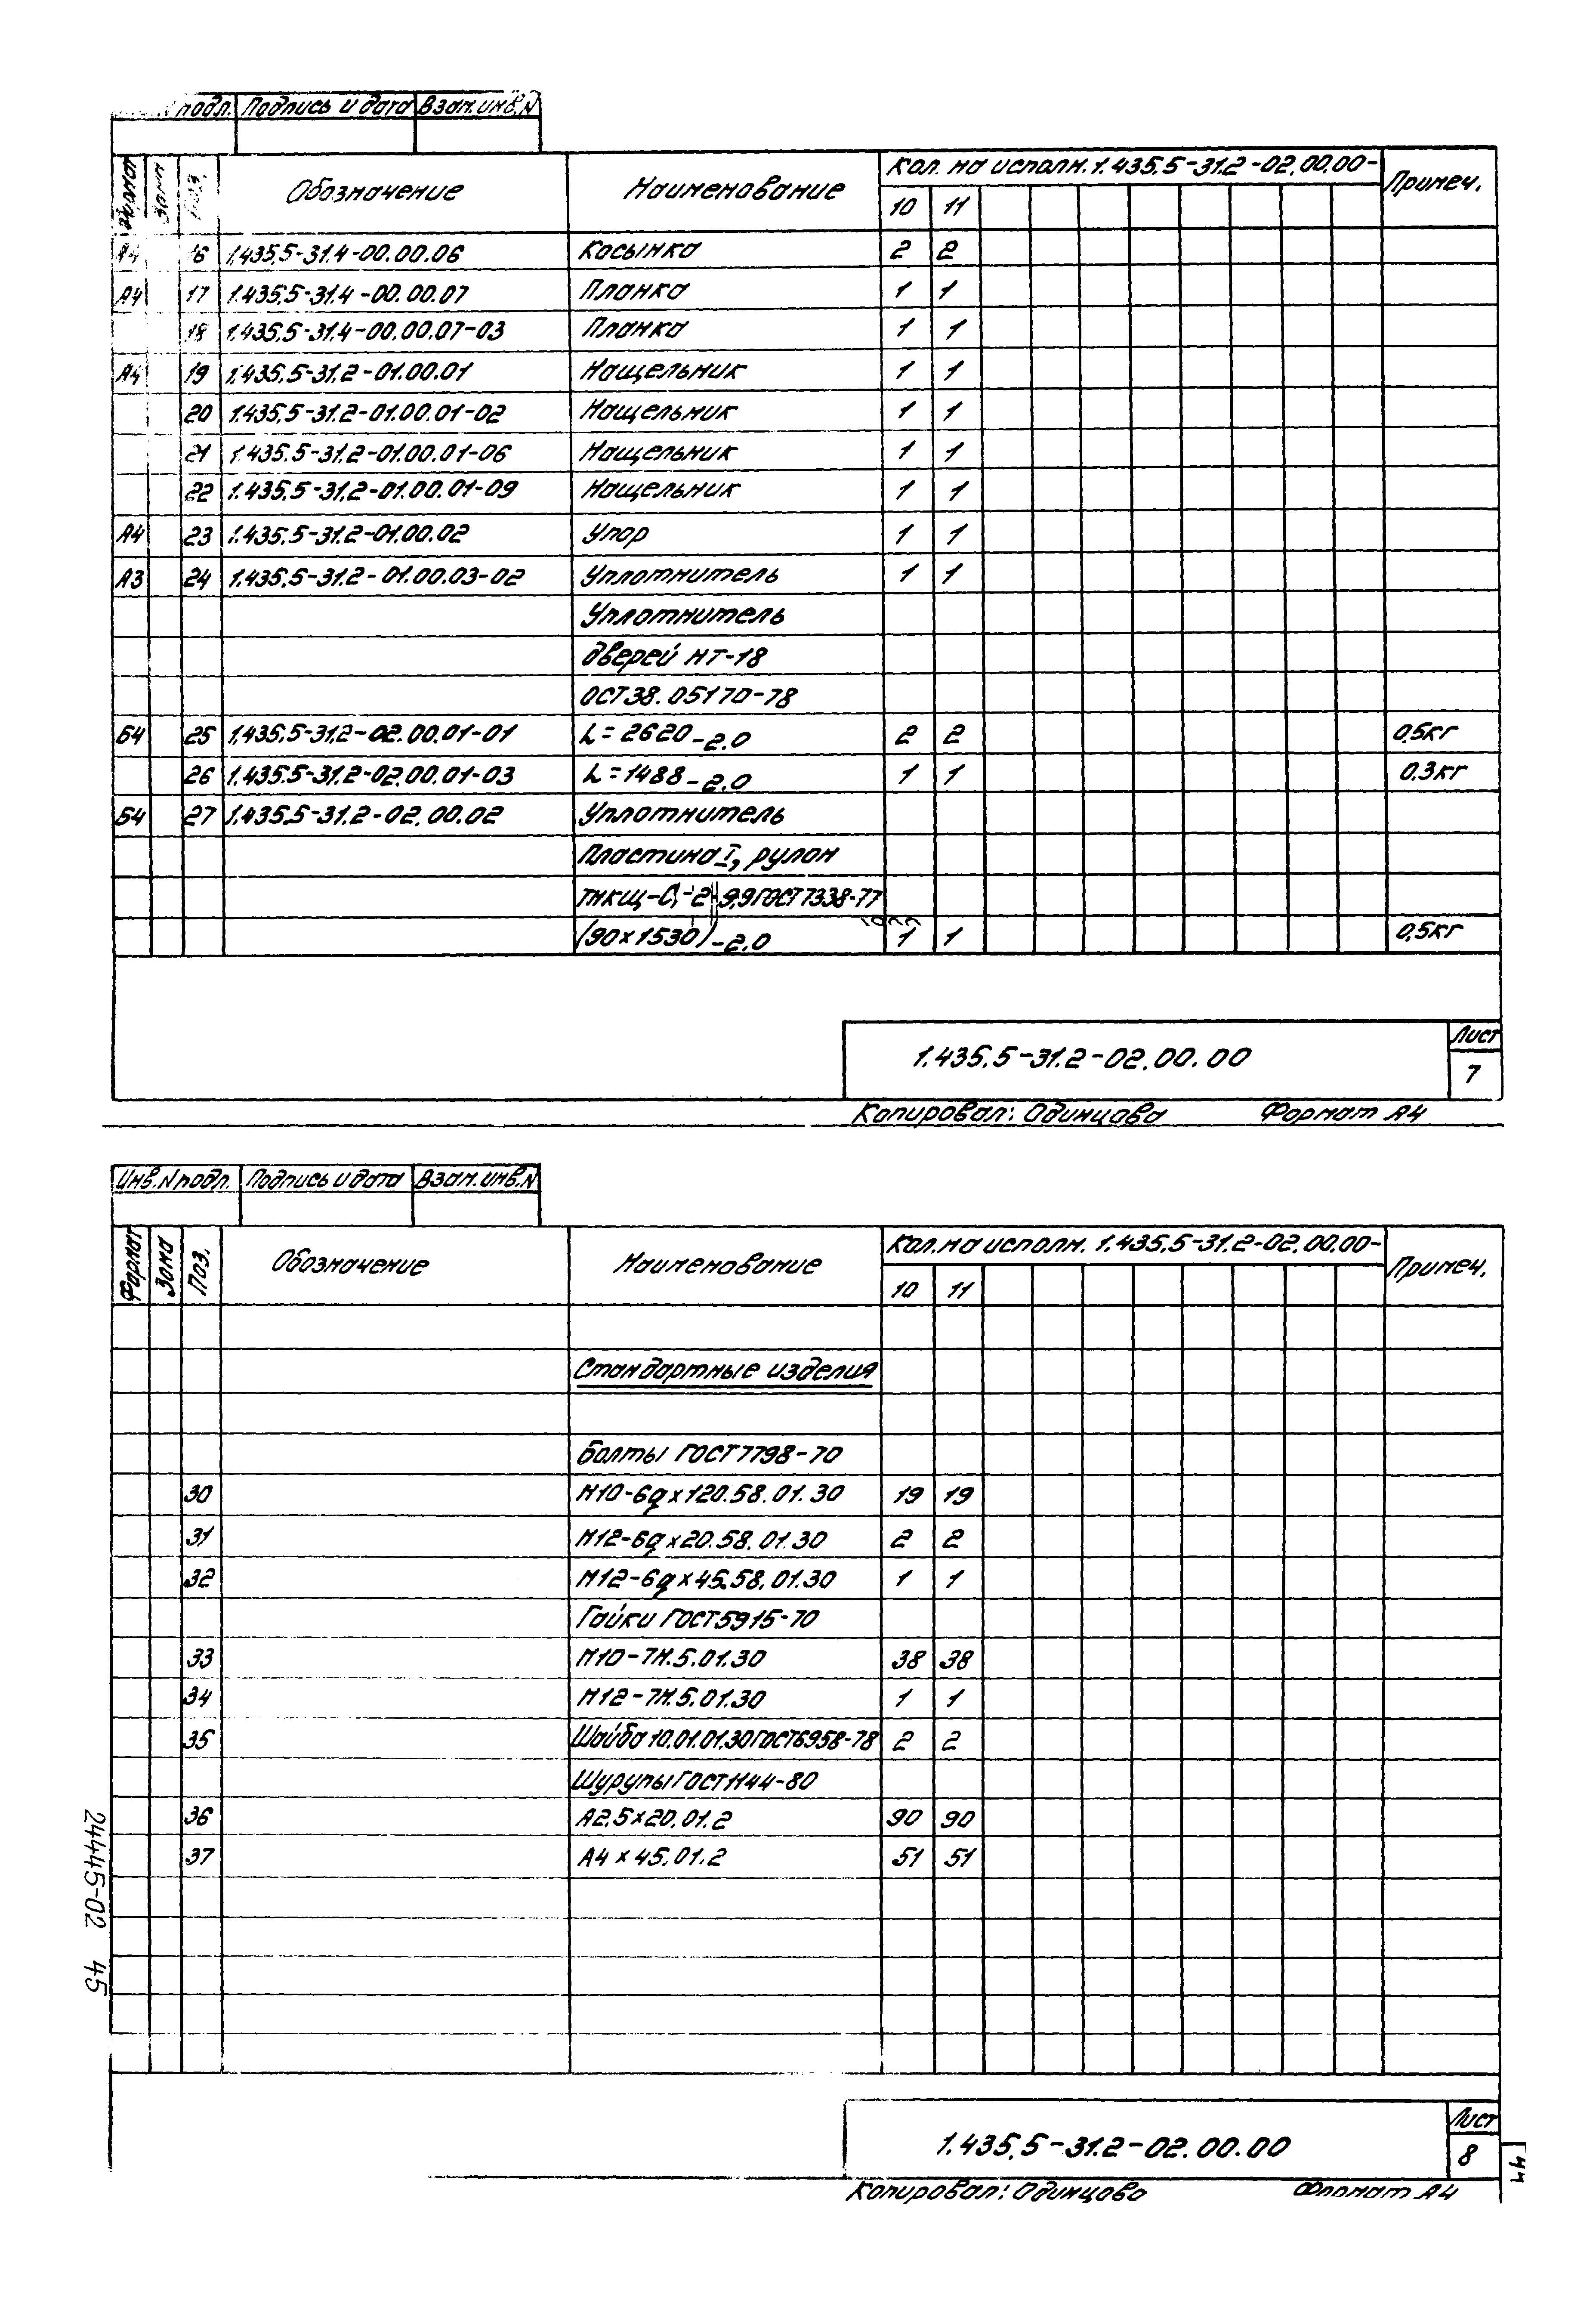 подл. Подпись и дата Взам. инв. N
Формат Зона Поз. Обозначение Наименование Кол. на исполн. 1.435.5-31.2-02.00.00- Примеч.
10 11
А4 16 1.435.5-31.4-00.00.06 Косынка 2 2
А4 17 1.435.5-31.4-00.00.07 Планка 1 1
18 1.435.5-31.4-00.00.07-03 Планка 1 1
А4 19 1.435.5-31.2-01.00.01 Нащельник 1 1
20 1.435.5-31.2-01.00.01-02 Нащельник 1 1
21 1.435.5-31.2-01.00.01-06 Нащельник 1 1
22 1.435.5-31.2-01.00.01-09 Нащельник 1 1
А4 23 1.435.5-31.2-01.00.02 Упор 1 1
А3 24 1.435.5-31.2-01.00.03-02 Уплотнитель 1 1
Уплотнитель
дверей НТ-18
ОСТ 38.05170-78
Б4 25 1.435.5-31.2-02.00.01-01 L=2620-2.0 2 2 0,5кг
26 1.435.5-31.2-02.00.01-03 L=1488-2.0 1 1 0.3кг
Б4 27 1.435.5-31.2-02.00.02 Уплотнитель
Пластина I, рулон
ТМКЩ-С, 9,9 ГОСТ 7338-77
(90х1530)-2.0 1 1 0,5кг
1.435.5-31.2-02.00.00 Лист
7
Копировал: Одинцова Формат А4
Инв. N подл. Подпись и дата Взам. инв. N
Формат Зона Поз. Обозначение Наименование Кол. на исполн. 1.435.5-31.2-02.00.00- Примеч.
10 11
Стандартные изделия
Болты ГОСТ 7798-70
30 М10-6gх120.58.01.30 19 19
31 М12-6gх20.58.01.30 2 2
32 М12-6gх45.58.01.30 1 1
Гайки ГОСТ 5915-70
33 М10-7Н.5.01.30 38 38
34 М12-7Н.5.01.30 1 1
35 Шайба 10.01.01.30 ГОСТ 6958-78 2 2
Шурупы ГОСТ 1144-80
36 А2,5х20.01.2 90 90
37 А4х45.01.2 51 51
24445-02 45
1.435.5-31.2-02.00.00 Лист
8
44
Копировал: Одинцова Формат А4